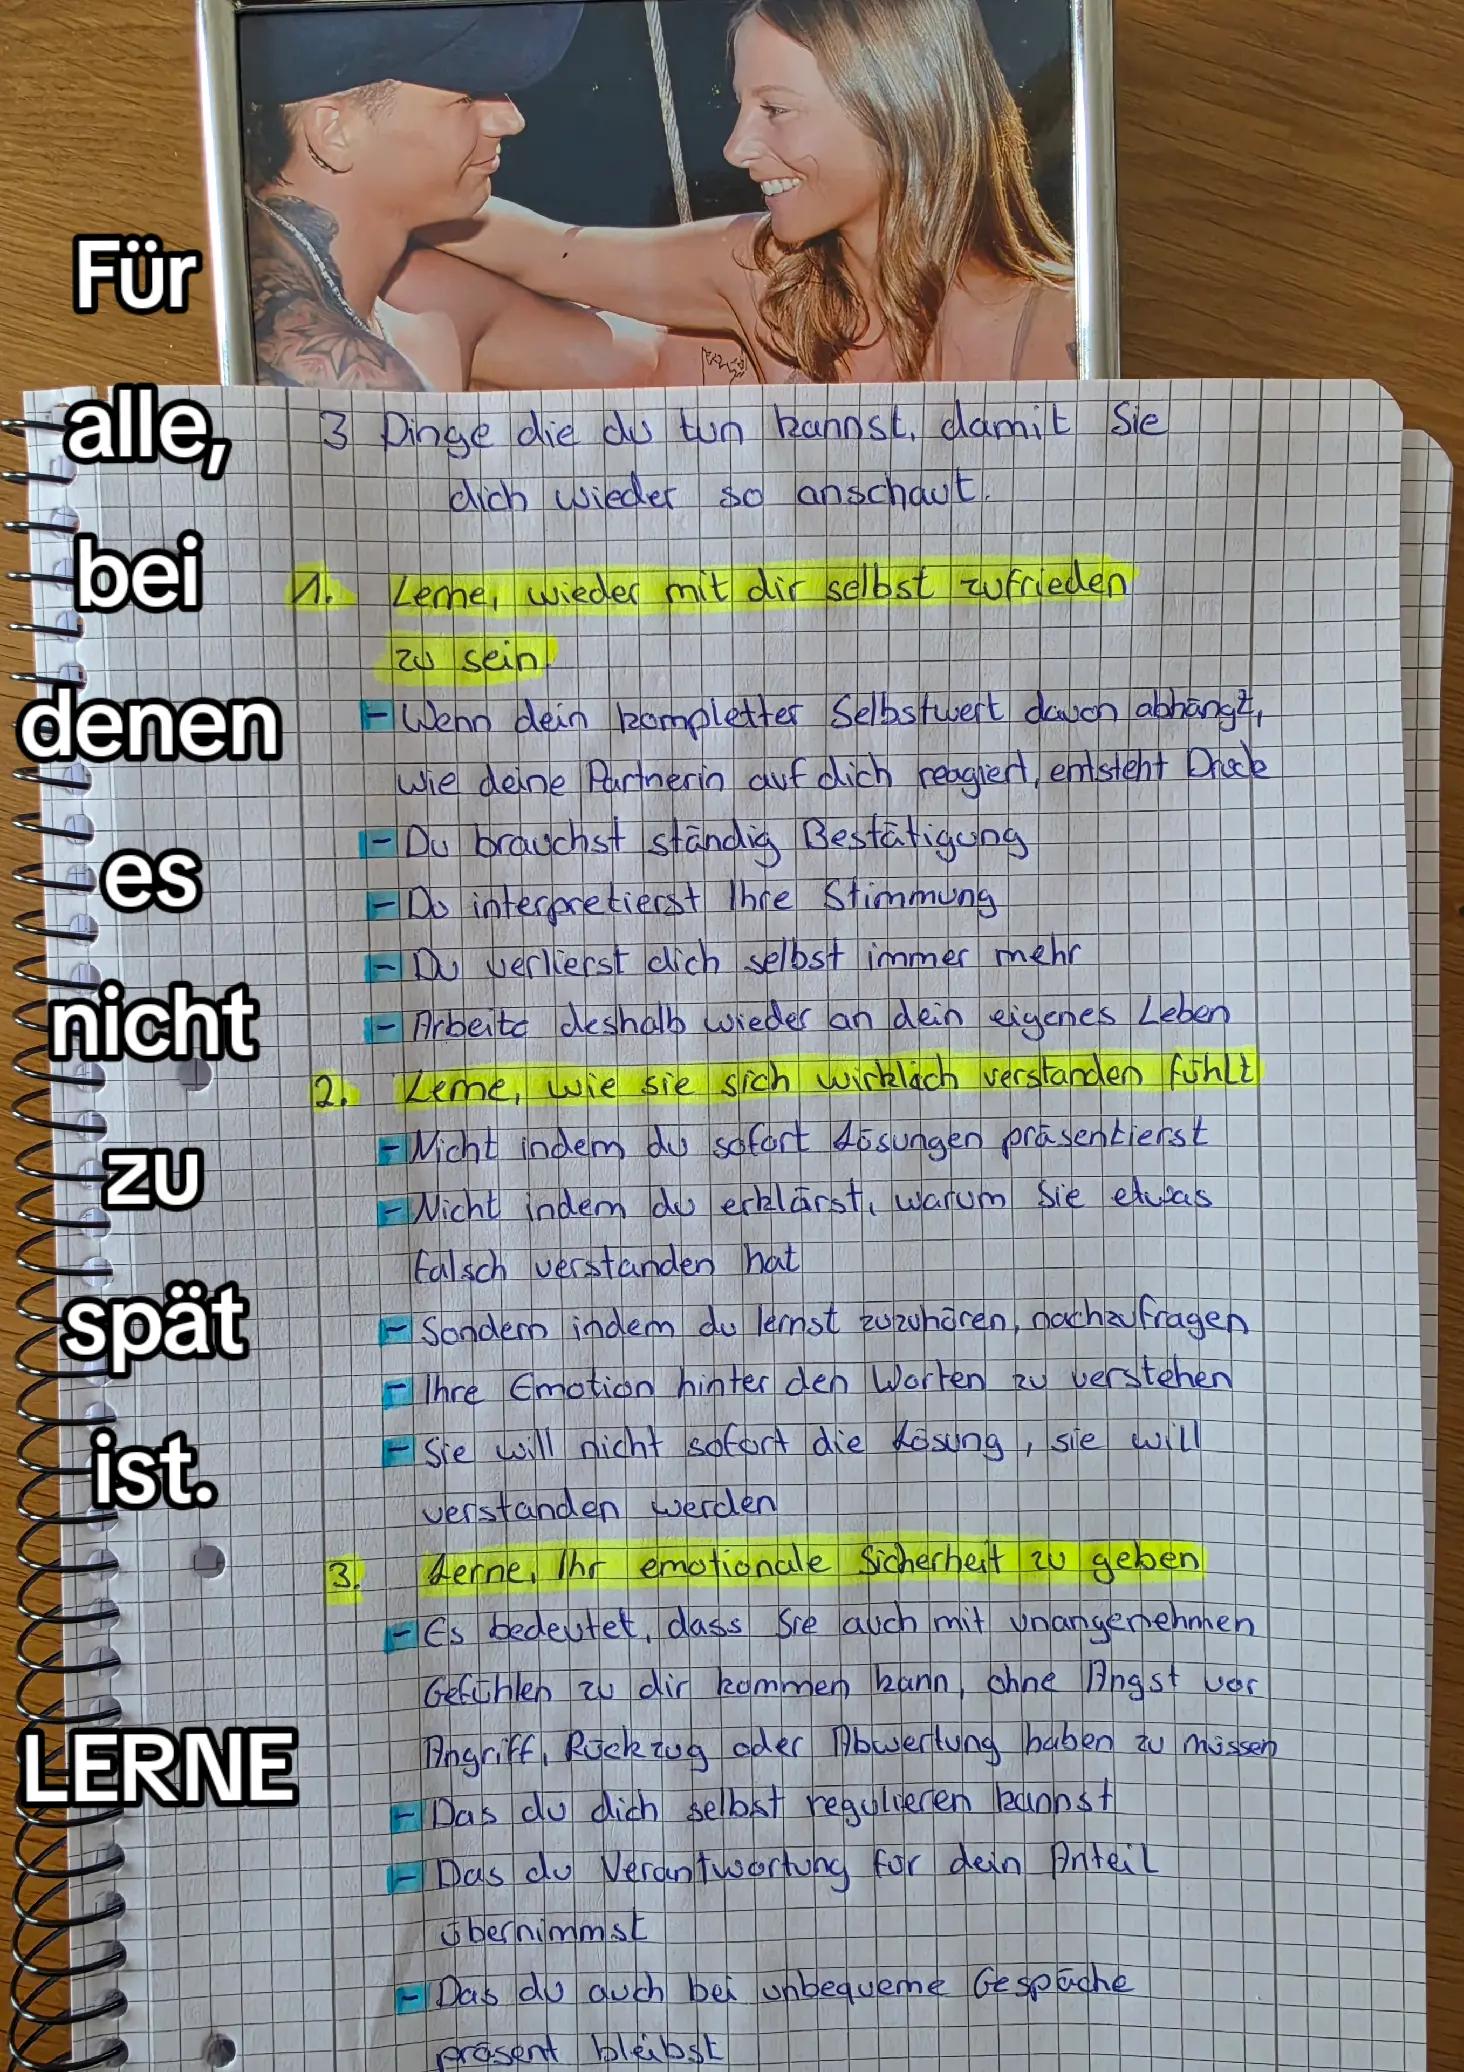 Für
alle,
bei
denen
es
nicht
zu
spät
ist.
LERNE
3 Dinge die du tun kannst, damit Sie
dich wieder so anschaut.
1. Lerne, wieder mit dir selbst zufrieden
zu sein.
- Wenn dein kompletter Selbstwert davon abhängt,
wie deine Partnerin auf dich reagiert, entsteht Druck
- Du brauchst ständig Bestätigung
- Du interpretierst Ihre Stimmung
- Du verlierst dich selbst immer mehr
- Arbeite deshalb wieder an dein eigenes Leben
2. Lerne, wie sie sich wirklich verstanden fühlt
- Nicht indem du sofort Lösungen präsentierst
- Nicht indem du erklärst, warum Sie etwas
falsch verstanden hat
- Sondern indem du lernst zuzuhören, nachzufragen
- Ihre Emotion hinter den Worten zu verstehen
- Sie will nicht sofort die Lösung, sie will
verstanden werden
3. Lerne, Ihr emotionale Sicherheit zu geben
- Es bedeutet, dass Sie auch mit unangenehmen
Gefühlen zu dir kommen kann, ohne Angst vor
Angriff, Rückzug oder Abwertung haben zu müssen
- Das du dich selbst regulieren kannst
- Das du Verantwortung für dein Anteil
übernimmst
- Das du auch bei unbequeme Gespäche
präsent bleibst